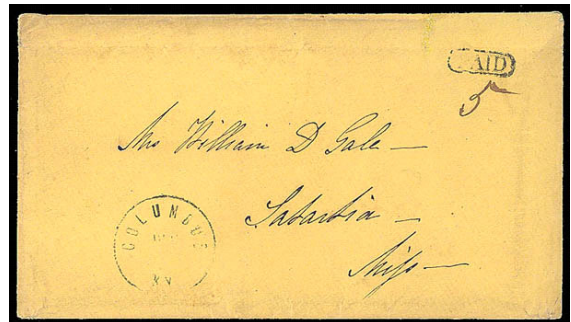 PAID
5
Mrs William D Gale —
Satartia —
Miss —
COLUMBUS
KY